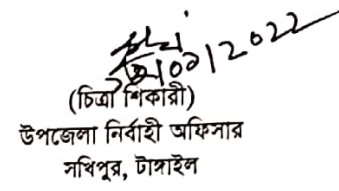 (চিত্রা শিকারী)
উপজেলা নির্বাহী অফিসার
সখিপুর, টাঙ্গাইল